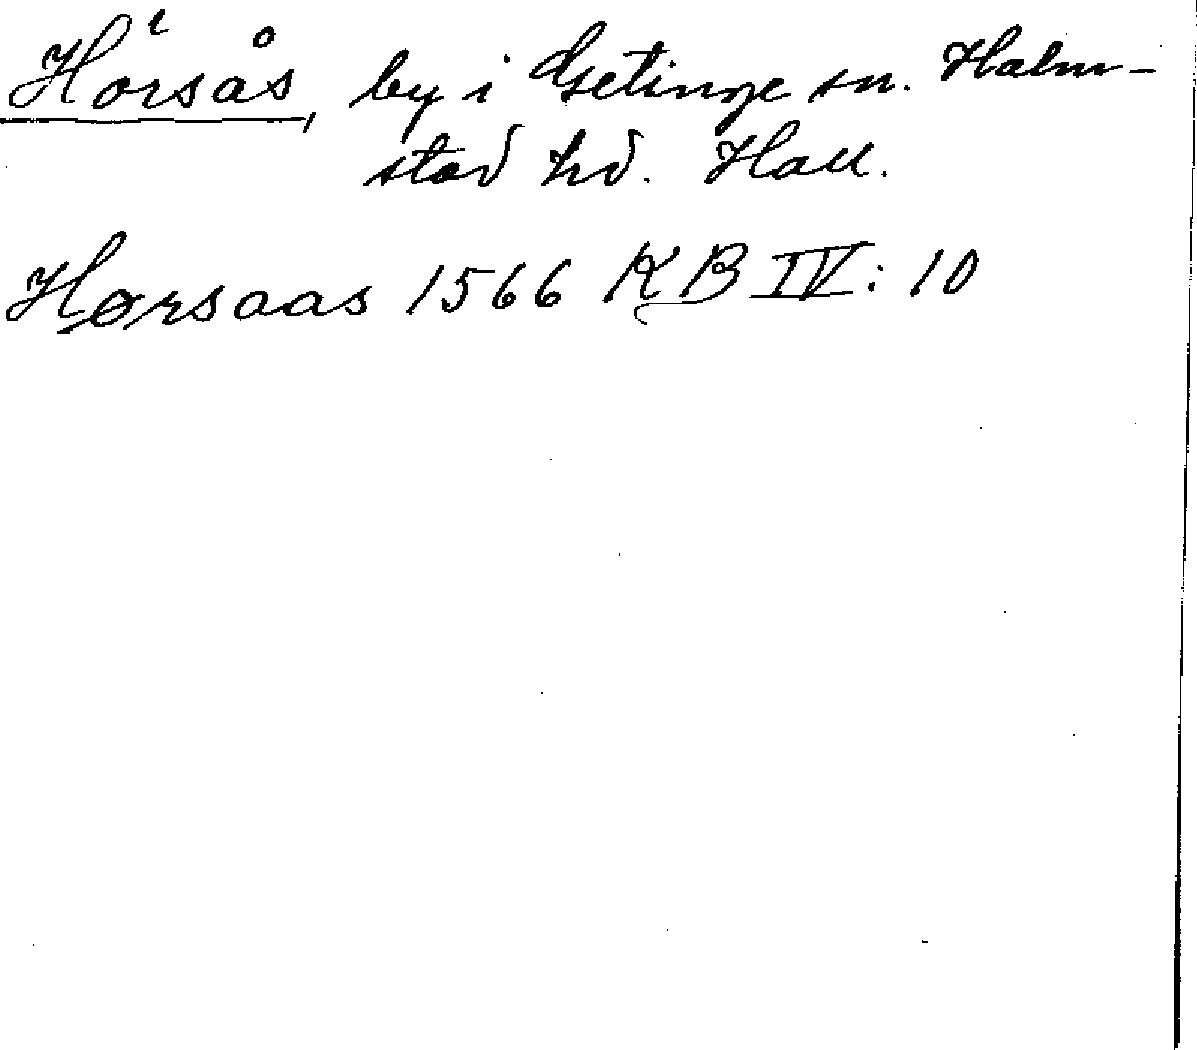 Hörsås, by i Getinge sn. Halm-
stad hd. Hall.
Hørsaas 1566 KB IV: 10